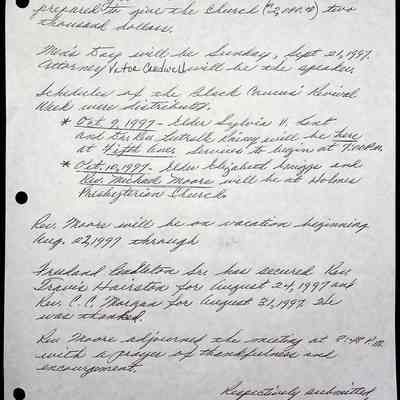 prepared to give the Church ($2,000.00) two
thousand dollars.
Men's Day will be Sunday, Sept 21, 1997.
Attorney Victor Cardwell will be the speaker.
Schedules of the Black Caucus' Revival
Week were distributed.
* Oct. 9, 1997 - Elder Sylvia V. Hunt
and Latrelle Rainey will be here
at Fifth Ave, Services to begin at 7:00 P.M.
* Oct. 10, 1997 - Elder Elizabeth Scruggs and
Rev. Michael Moore will be at Holmes
Presbyterian Church.
Rev. Moore will be on vacation beginning
Aug. 23, 1997 through
Pendleton Sr. has secured Rev.
Travis Hairston for August 24, 1997 and
Rev. C.C. Morgan for August 31, 1997. He
was thanked.
Rev Moore adjourned the meeting at 8:48 P.M.
with a prayer of thankfulness and
encourgment.
Respectively submitted